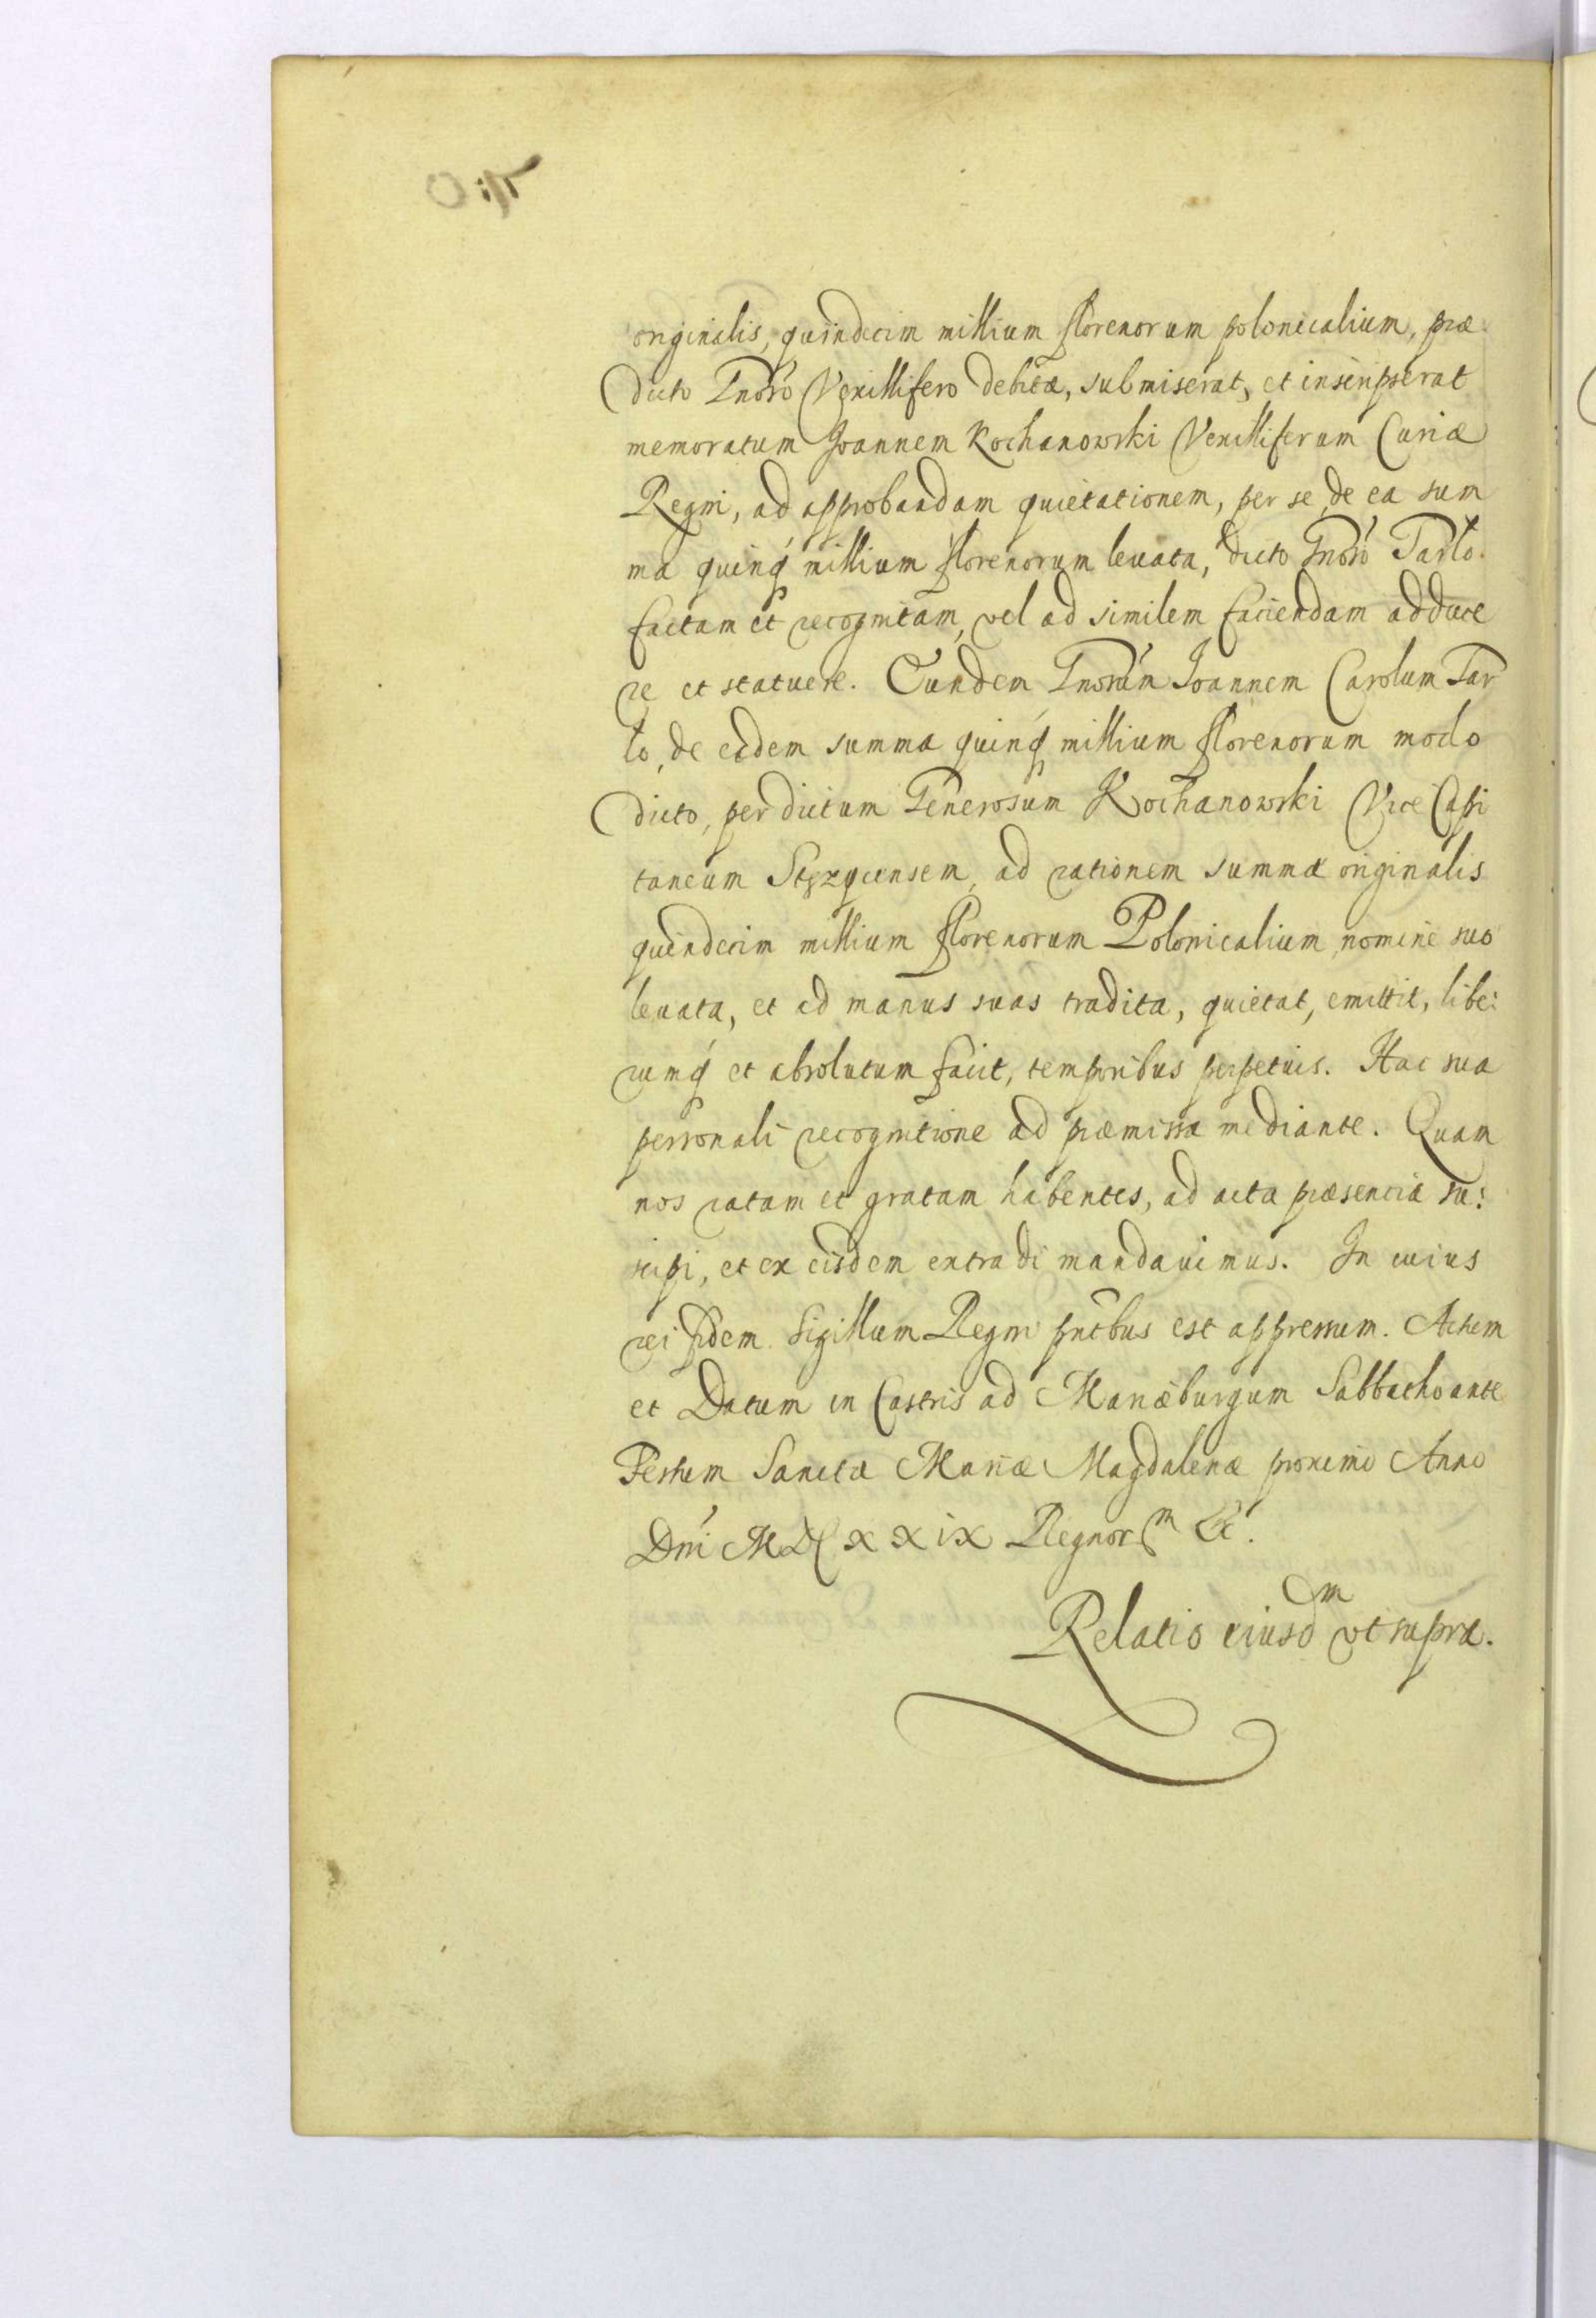 originalis, quindecim millium florenorum polonicalium, præ
dicto Gnoso Vexillifero debitæ, submiserat, et inscripserat
memoratum Joannem Kochanowski Vexilliferum Curiæ
Regni, ad approbandam quietationem, per se, de ea sum
ma quinq́ millium florenorum levata, dicto Gnoso Tarło
factam et recognitam, vel ad similem faciendam adduce
re et statuere. Eundem Gnosum Joannem Carolum Tar
ło, de eadem summa quinq́ millium florenorum modo
dicto, per dictum Generosum Kochanowski Vice Capi
taneum Stęzycensem, ad rationem summæ originalis
quindecim millium florenorum Polonicalium, nomine suo
levata, et ad manus suas tradita, quietat, emittit, libe:
rumq́ et absolutum facit, temporibus perpetuis. Hac sua
personali recognitione ad præmissa mediante. Quam
nos ratam et gratam habentes, ad acta præsentia su:
scipi, et ex eisdem extradi mandavimus. In cuius
rei fidem Sigillum Regni pntbus est appressum. Actum
et Datum in Castris ad Mariæburgum Sabbatho ante
Festum Sanctæ Mariæ Magdalenæ proximo Anno
Dni MDCxxix Regnorm &c.
Relatio eiusdm ut supra.